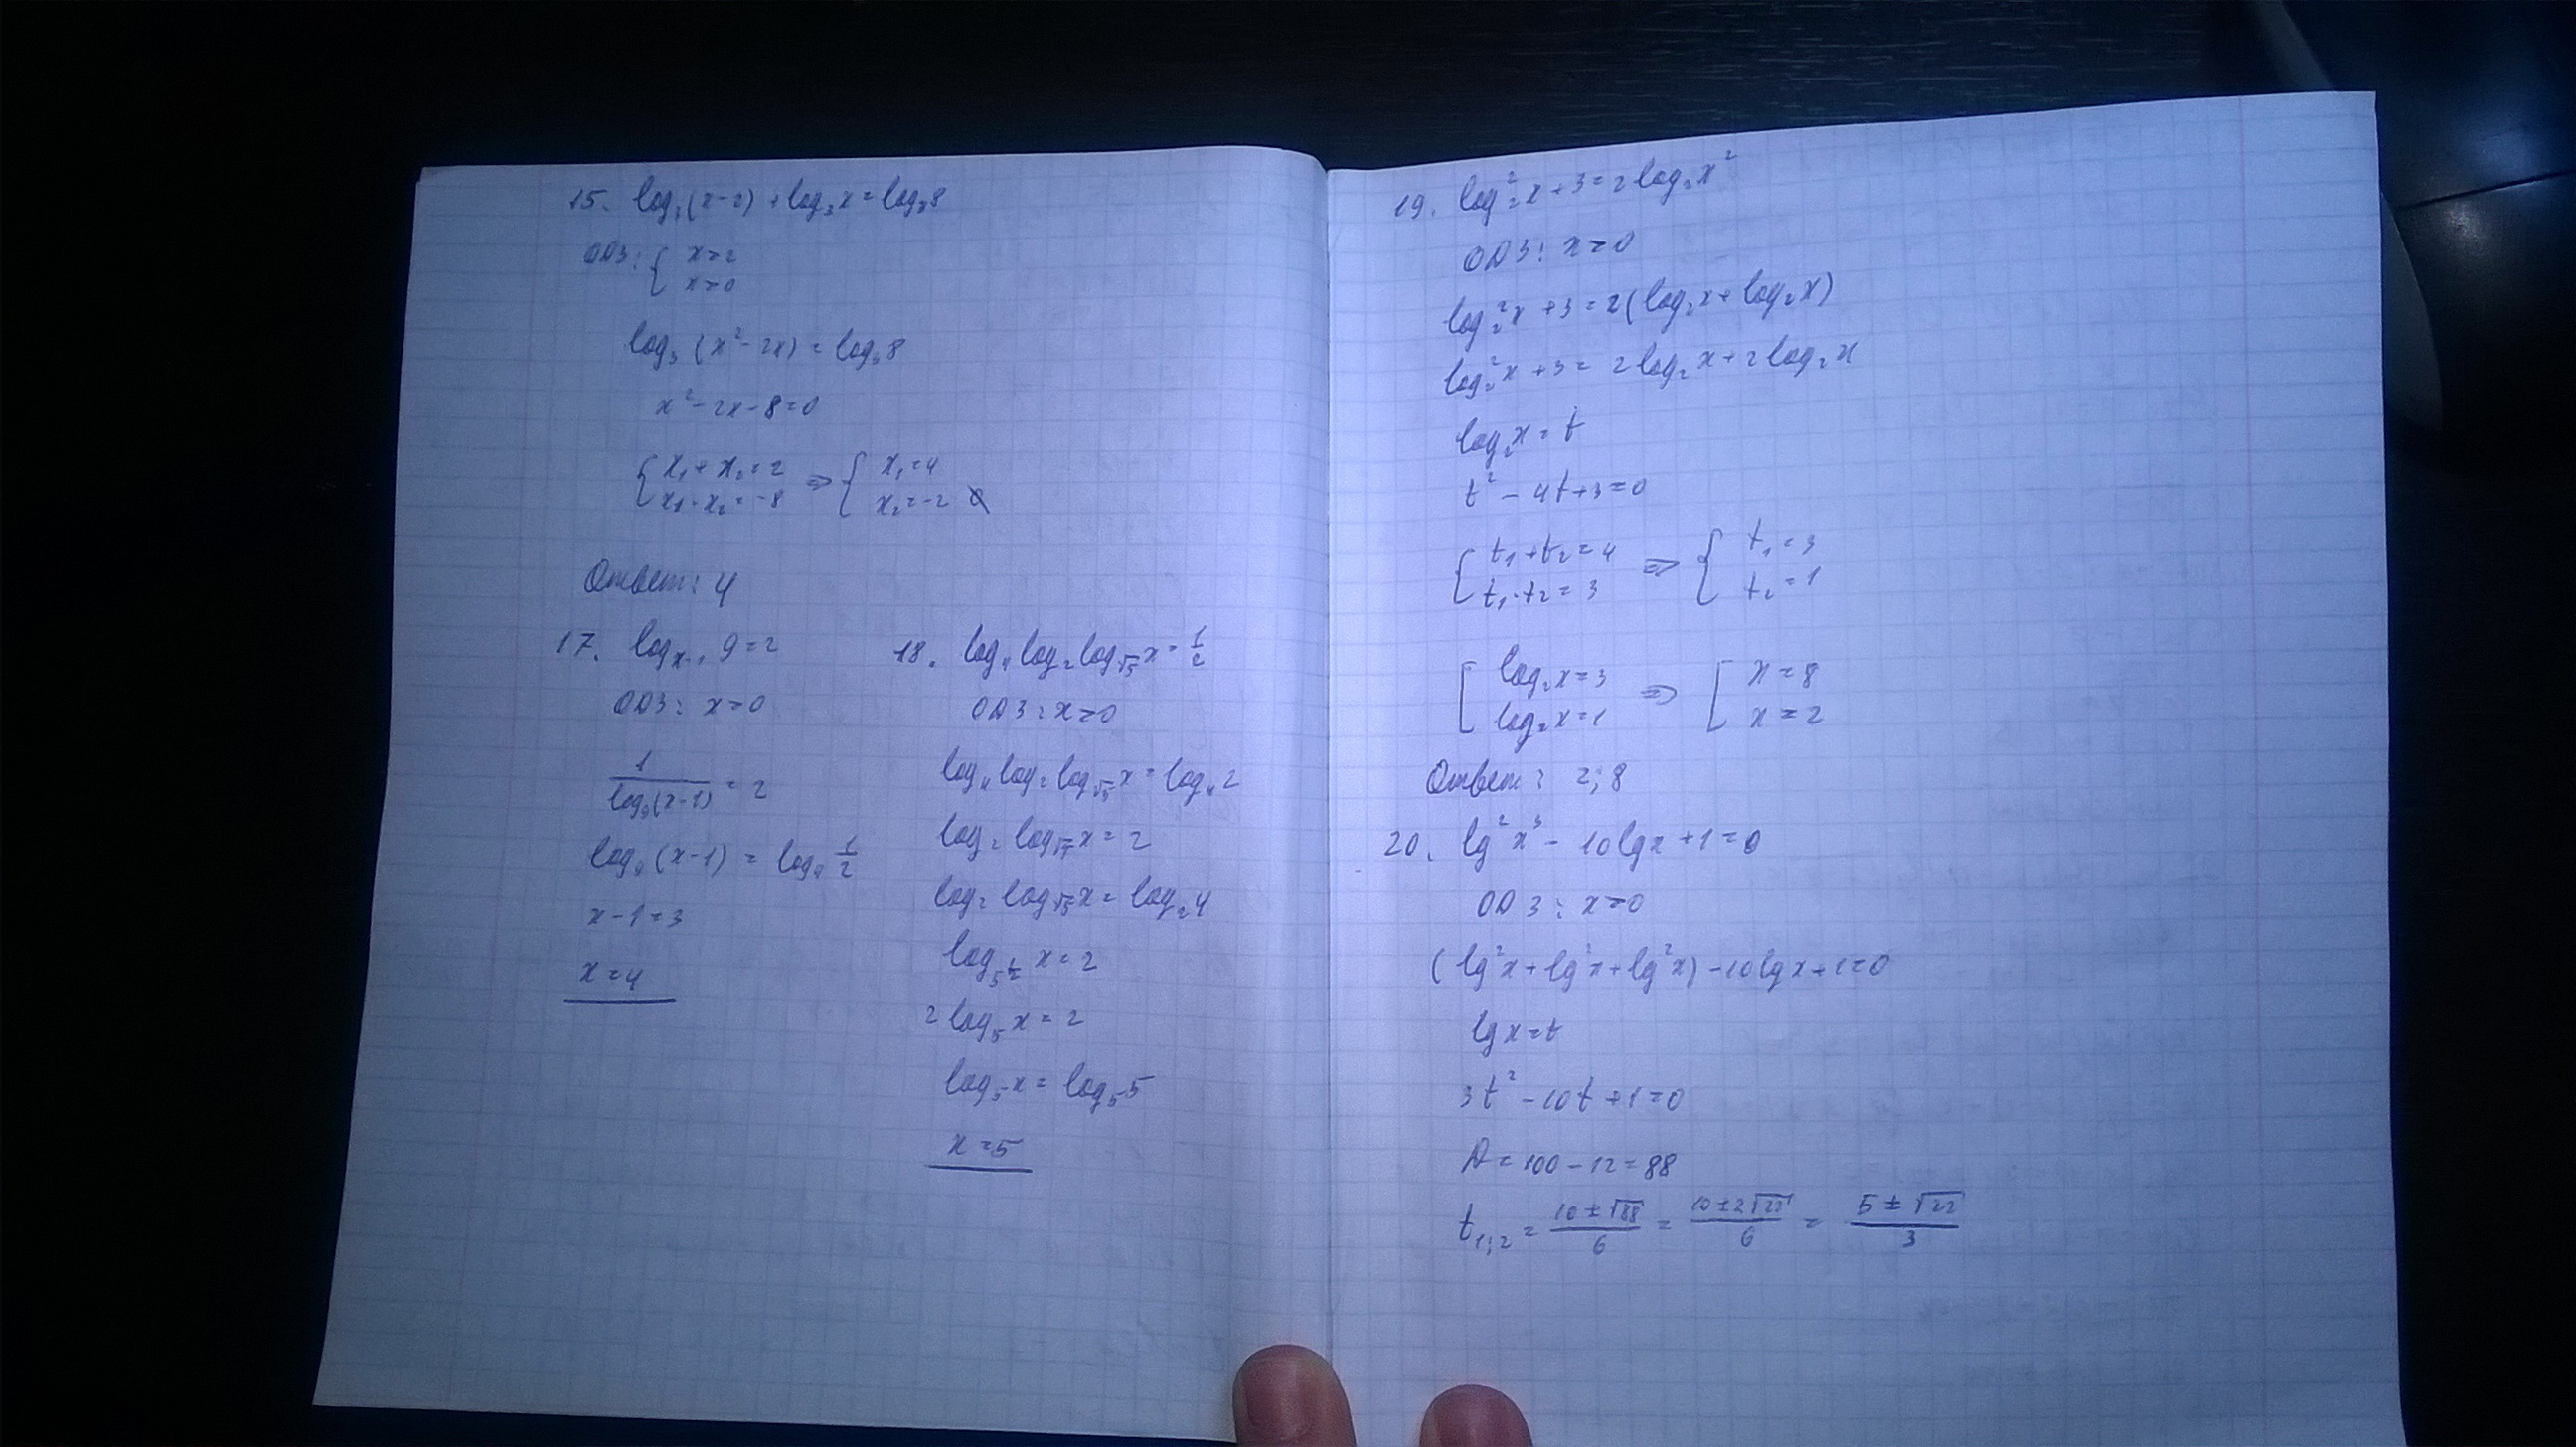 15. log₃(x-2) + log₃x = log₃8
ОДЗ: { x>2
x>0
log₃(x²-2x) = log₃8
x²-2x-8=0
{ x₁+x₂=2 ⇒ { x₁=4
x₁·x₂=-8 x₂=-2
Ответ: 4
17. logₓ₋₁ 9=2
ОДЗ: x>0
1/log₉(x-1) = 2
log₉(x-1) = log₉ 1/2
x-1=3
x=4
18. log₄log₂log_√5 x = 1/2
ОДЗ: x>0
log₄log₂log_√5 x = log₄2
log₂ log_√5 x = 2
log₂ log_√5 x = log₂4
log_5^½ x = 2
2log₅x = 2
log₅x = log₅5
x=5
19. log₂²x+3=2log₂x²
ОДЗ: x>0
log₂²x+3=2(log₂x+log₂x)
log₂²x+3=2log₂x+2log₂x
log₂x=t
t²-4t+3=0
{ t₁+t₂=4 ⇒ { t₁=3
t₁·t₂=3 t₂=1
[ log₂x=3 ⇒ [ x=8
log₂x=1 x=2
Ответ: 2; 8
20. lg²x³-10lgx+1=0
ОДЗ: x>0
(lg²x+lg²x+lg²x)-10lgx+1=0
lgx=t
3t²-10t+1=0
D=100-12=88
t₁;₂ = (10±√88)/6 = (10±2√22)/6 = (5±√22)/3